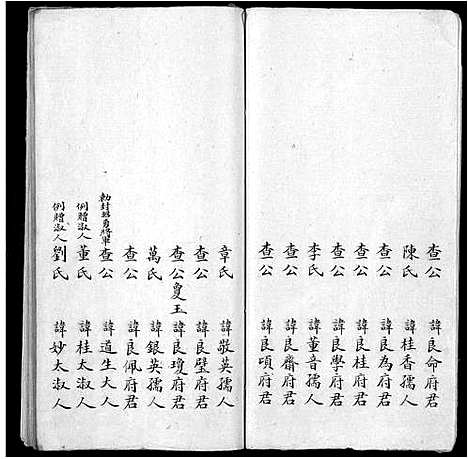 查公 諱良命府君
陳氏 諱桂香孺人
查公 諱良為府君
查公 諱良桂府君
查公 諱良學府君
李氏 諱董音孺人
查公 諱良齋府君
查公 諱良頊府君
章氏 諱敬英孺人
查公 諱良璧府君
查公 夐玉 諱良瓊府君
萬氏 諱銀英孺人
查公 諱良佩府君
勅封昭勇將軍查公 諱道生大人
例贈淑人董氏 諱桂太淑人
例贈淑人劉氏 諱妙太淑人